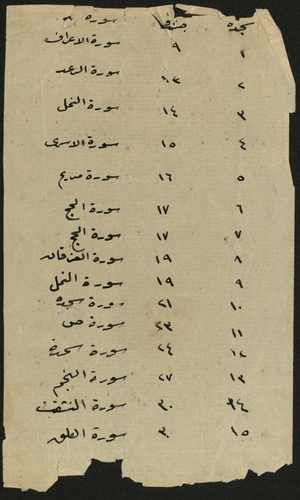 سجدة جزء سورة
١ ٩ سورة الاعراف
٢ ١٣ سورة الرعد
٣ ١٤ سورة النحل
٤ ١٥ سورة الاسرى
٥ ١٦ سورة مريم
٦ ١٧ سورة الحج
٧ ١٧ سورة الحج
٨ ١٩ سورة الفرقان
٩ ١٩ سورة النمل
١٠ ٢١ سورة سجدة
١١ ٢٣ سورة ص
١٢ ٢٤ سورة سجدة
١٣ ٢٧ سورة النجم
١٤ ٣٠ سورة انشقت
١٥ ٣٠ سورة العلق